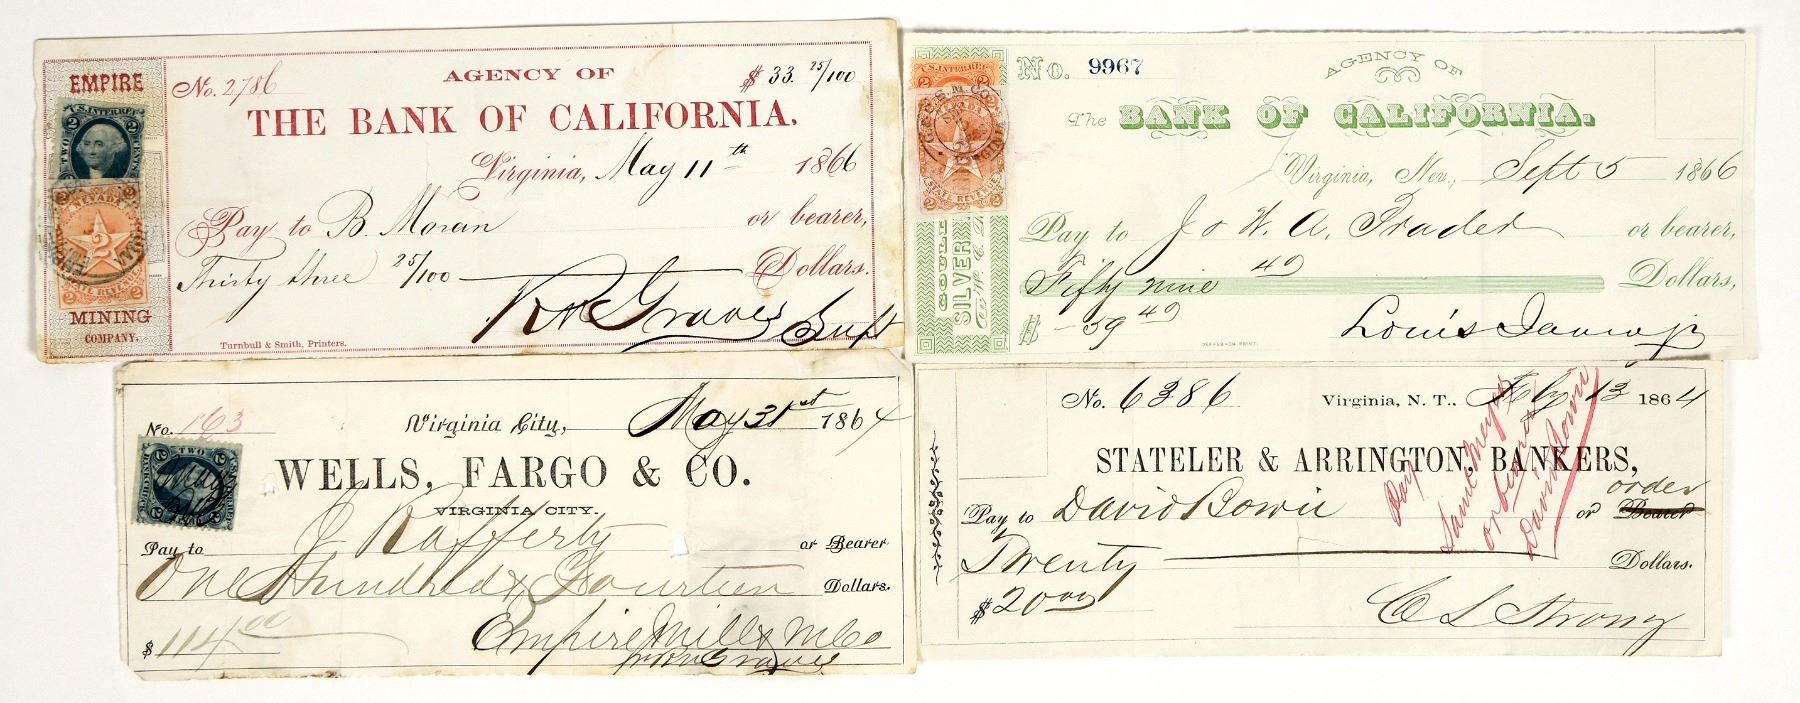 EMPIRE
MINING
COMPANY.
U.S. INTER. REV.
TWO CENTS
2 2
NEVADA
2
STATE REVENUE
No. 2786
AGENCY OF
$ 33. 25/100
THE BANK OF CALIFORNIA.
Virginia, May 11th 1866
Pay to B. Moran or bearer,
Thirty three 25/100 Dollars.
R N Graves Supt
Turnbull & Smith, Printers.
No. 9967
AGENCY OF
The BANK OF CALIFORNIA.
Virginia, Nev., Sept 5 1866
Pay to J & W. A. Trader or bearer,
Fifty nine 49 Dollars,
$ 59 49
Louis Janin jr
U.S. INTER. REV.
STATE REVENUE
GOULD
SILVER
No. 163
Virginia City, May 31st 1864
WELLS, FARGO & CO.
VIRGINIA CITY.
TWO
Pay to J Rafferty or Bearer
One Hundred & Fourteen Dollars.
$ 114 00
Empire Mill & M Co
Graves
No. 6386
Virginia, N. T., Feby 13 1864
STATELER & ARRINGTON, BANKERS,
Pay to David Bowie or Bearer order
Twenty Dollars.
$ 20 00
C L Strong
Pay
or bearer
David Bowie